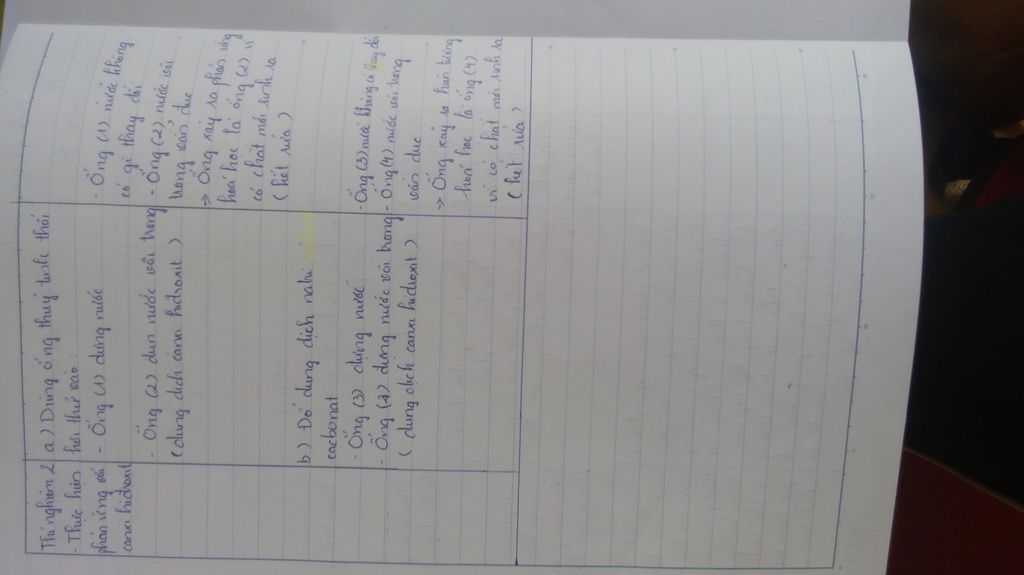 Thí nghiệm 2
- Thực hiện
phản ứng với
canxi hiđroxit
a) Dùng ống thuỷ tinh thổi
hơi thở vào:
- Ống (1) đựng nước
- Ống (2) đun nước vôi trong
(dung dịch canxi hiđroxit)
b) Đổ dung dịch natri
cacbonat
- Ống (3) đựng nước
- Ống (4) đựng nước vôi trong
(dung dịch canxi hiđroxit)
- Ống (1) nước không
có gì thay đổi
- Ống (2) nước vôi
trong vẩn đục
→ Ống xảy ra phản ứng
hoá học là ống (2) vì
có chất mới sinh ra
(kết tủa)
- Ống (3) nước không có thay đổi
- Ống (4) nước vôi trong
vẩn đục
→ Ống xảy ra hiện tượng
hoá học là ống (4)
vì có chất mới sinh ra
(kết tủa)